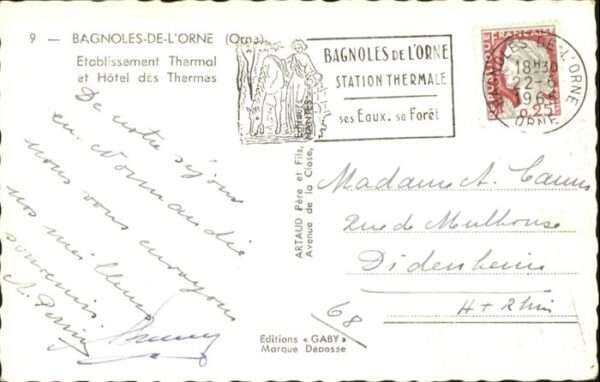 9 — BAGNOLES-DE-L'ORNE (Orne)
Etablissement Thermal
et Hôtel des Thermes
BAGNOLES DE L'ORNE
STATION THERMALE
ses Eaux, sa Forêt
BAGNOLES DE L'ORNE
18H30
22-6
196
ORNE
REPUBLIQUE FRANÇAISE
0,25
De notre séjour
en Normandie
nous vous envoyons
nos meilleurs
souvenirs
ARTAUD Père et Fils, Editeurs
Avenue de la Close, NANTES
Madame A.
Rue de Mulhouse
Didenheim
Ht Rhin
68
Editions « GABY »
Marque Déposée